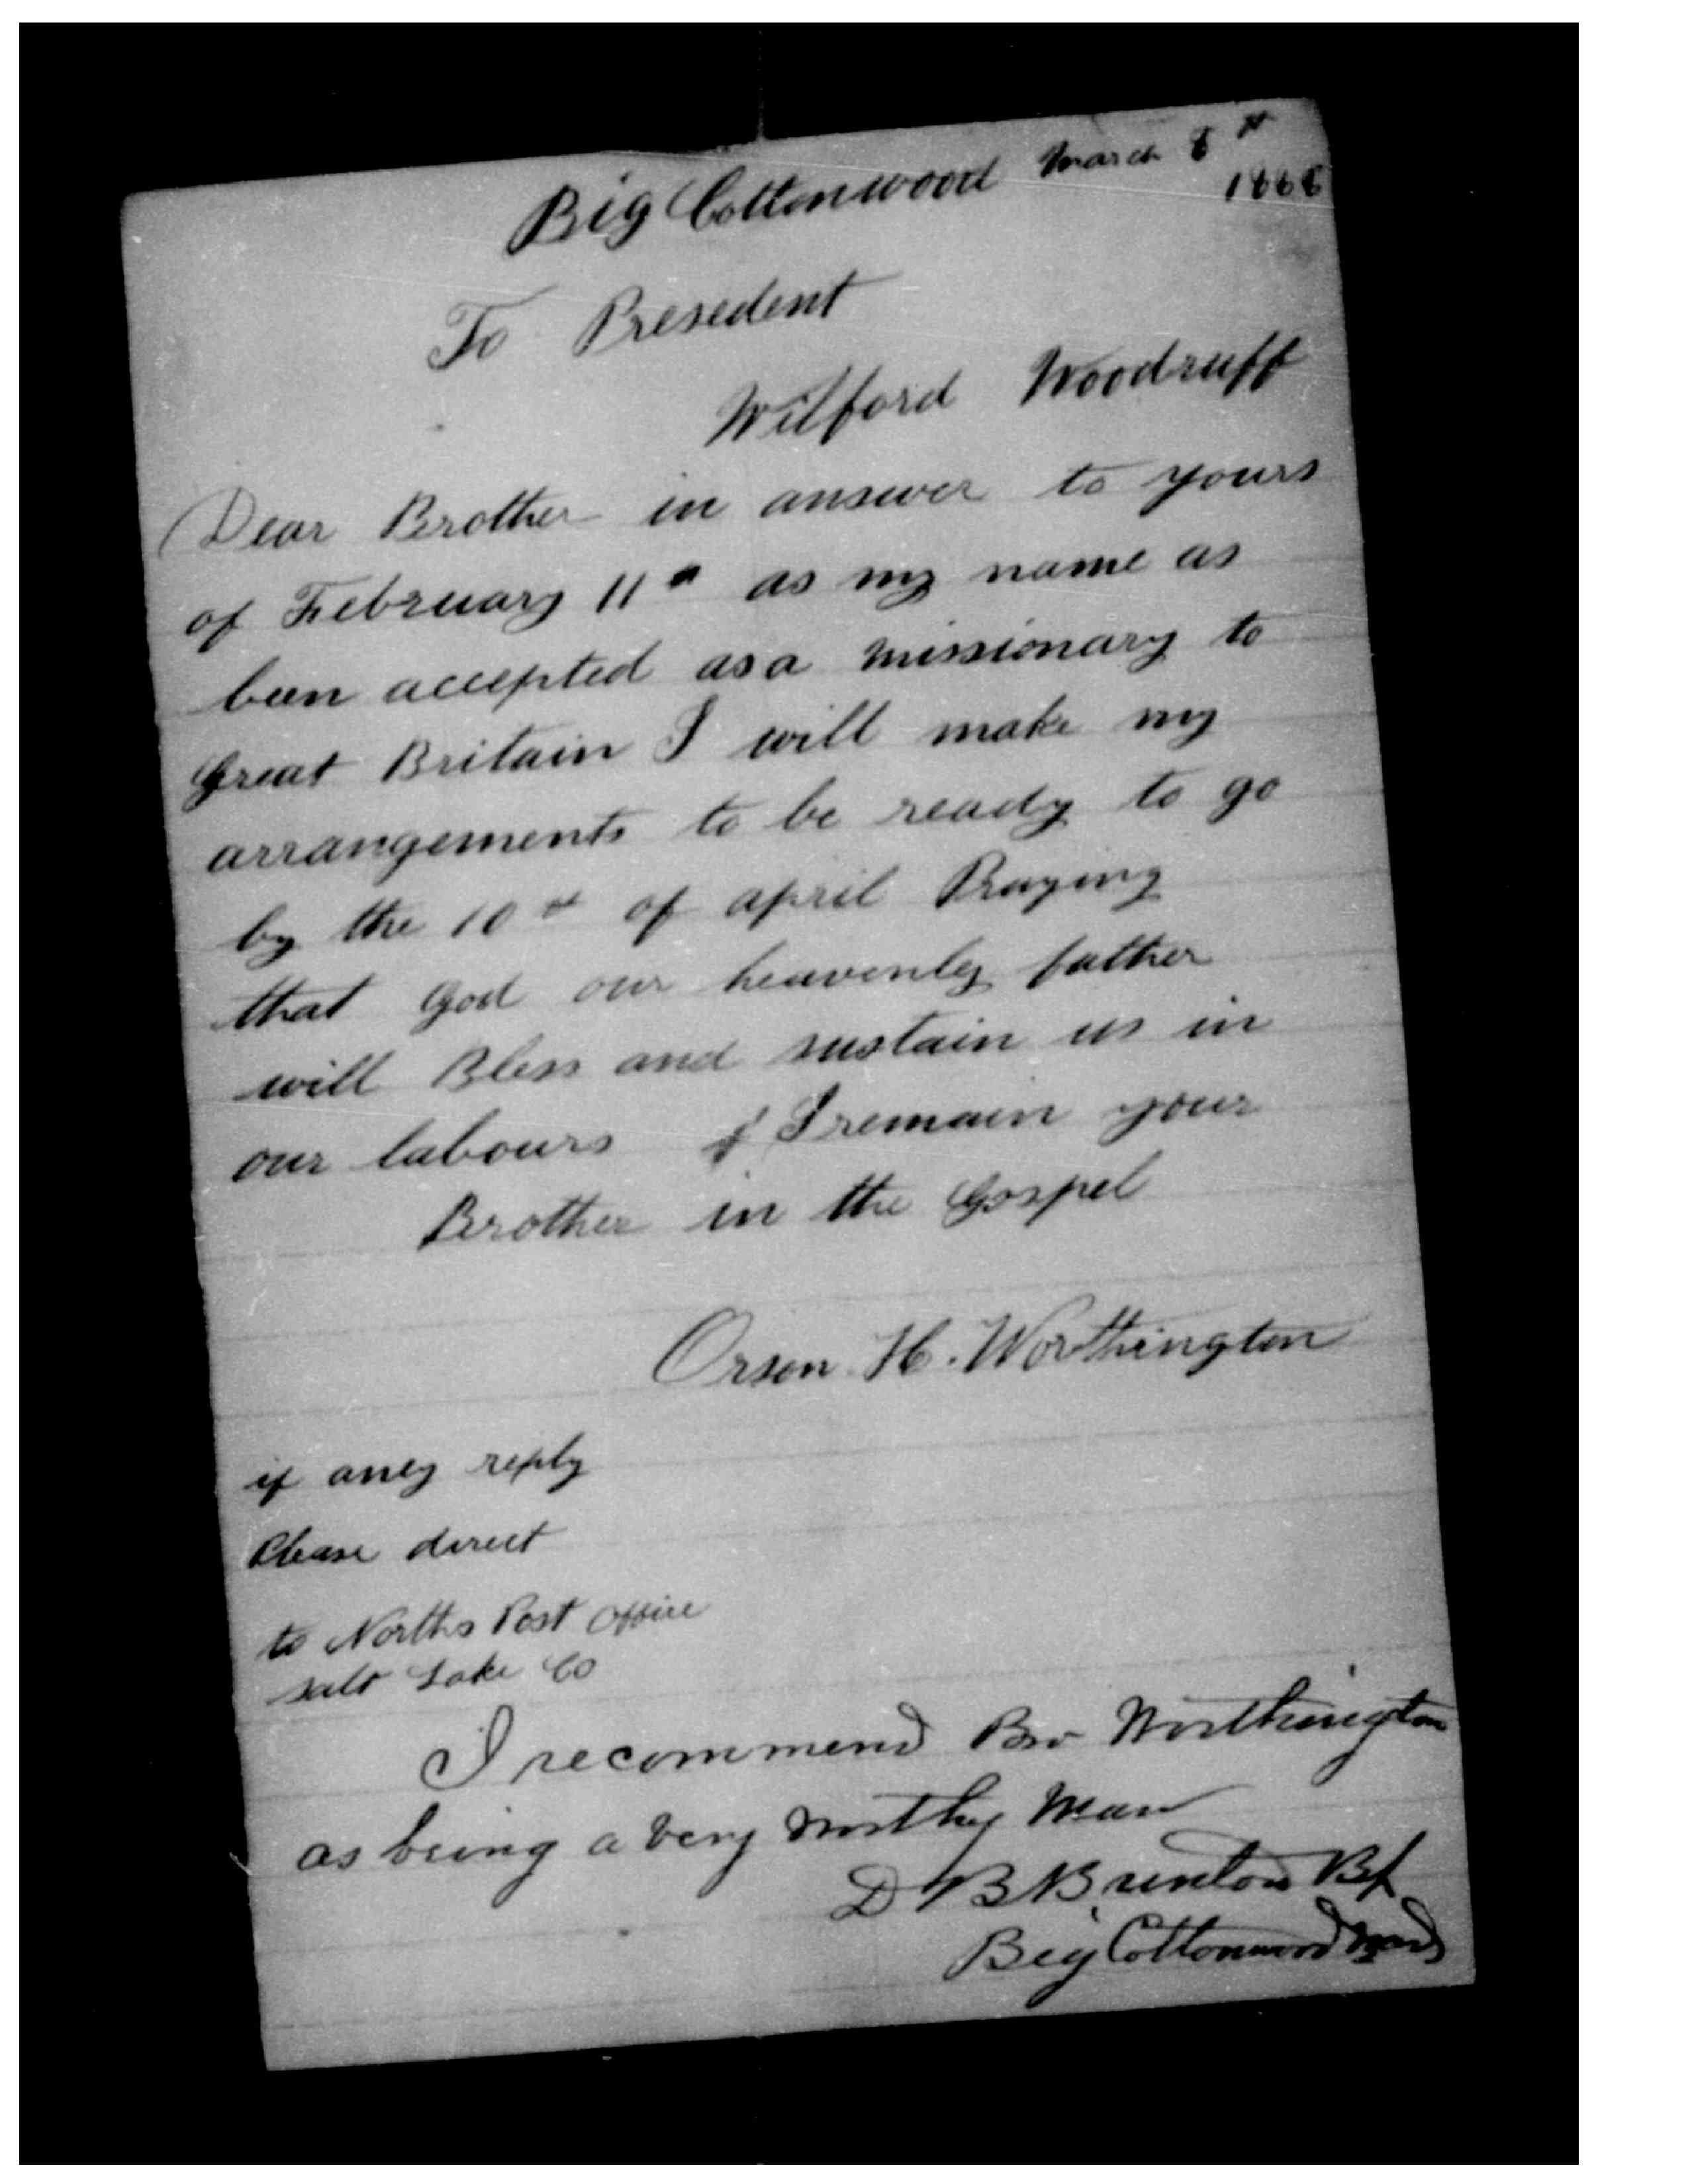 Big Cottonwood March 8th
1888
To Presedent
Wilford Woodruff
Dear Brother in answer to yours
of February 11th as my name as
been accepted as a missionary to
Great Britain I will make my
arrangements to be ready to go
by the 10th of april Praying
that God our heavenly father
will Bless and sustain us in
our labours & I remain your
Brother in the Gospel
Orson H. Worthington
if aney reply
Please direct
to Norths Post Office
salt Lake Co
I recommend Bro Worthington
as being a very worthy Man
D B Brinton Bp
Big Cottonwood Ward